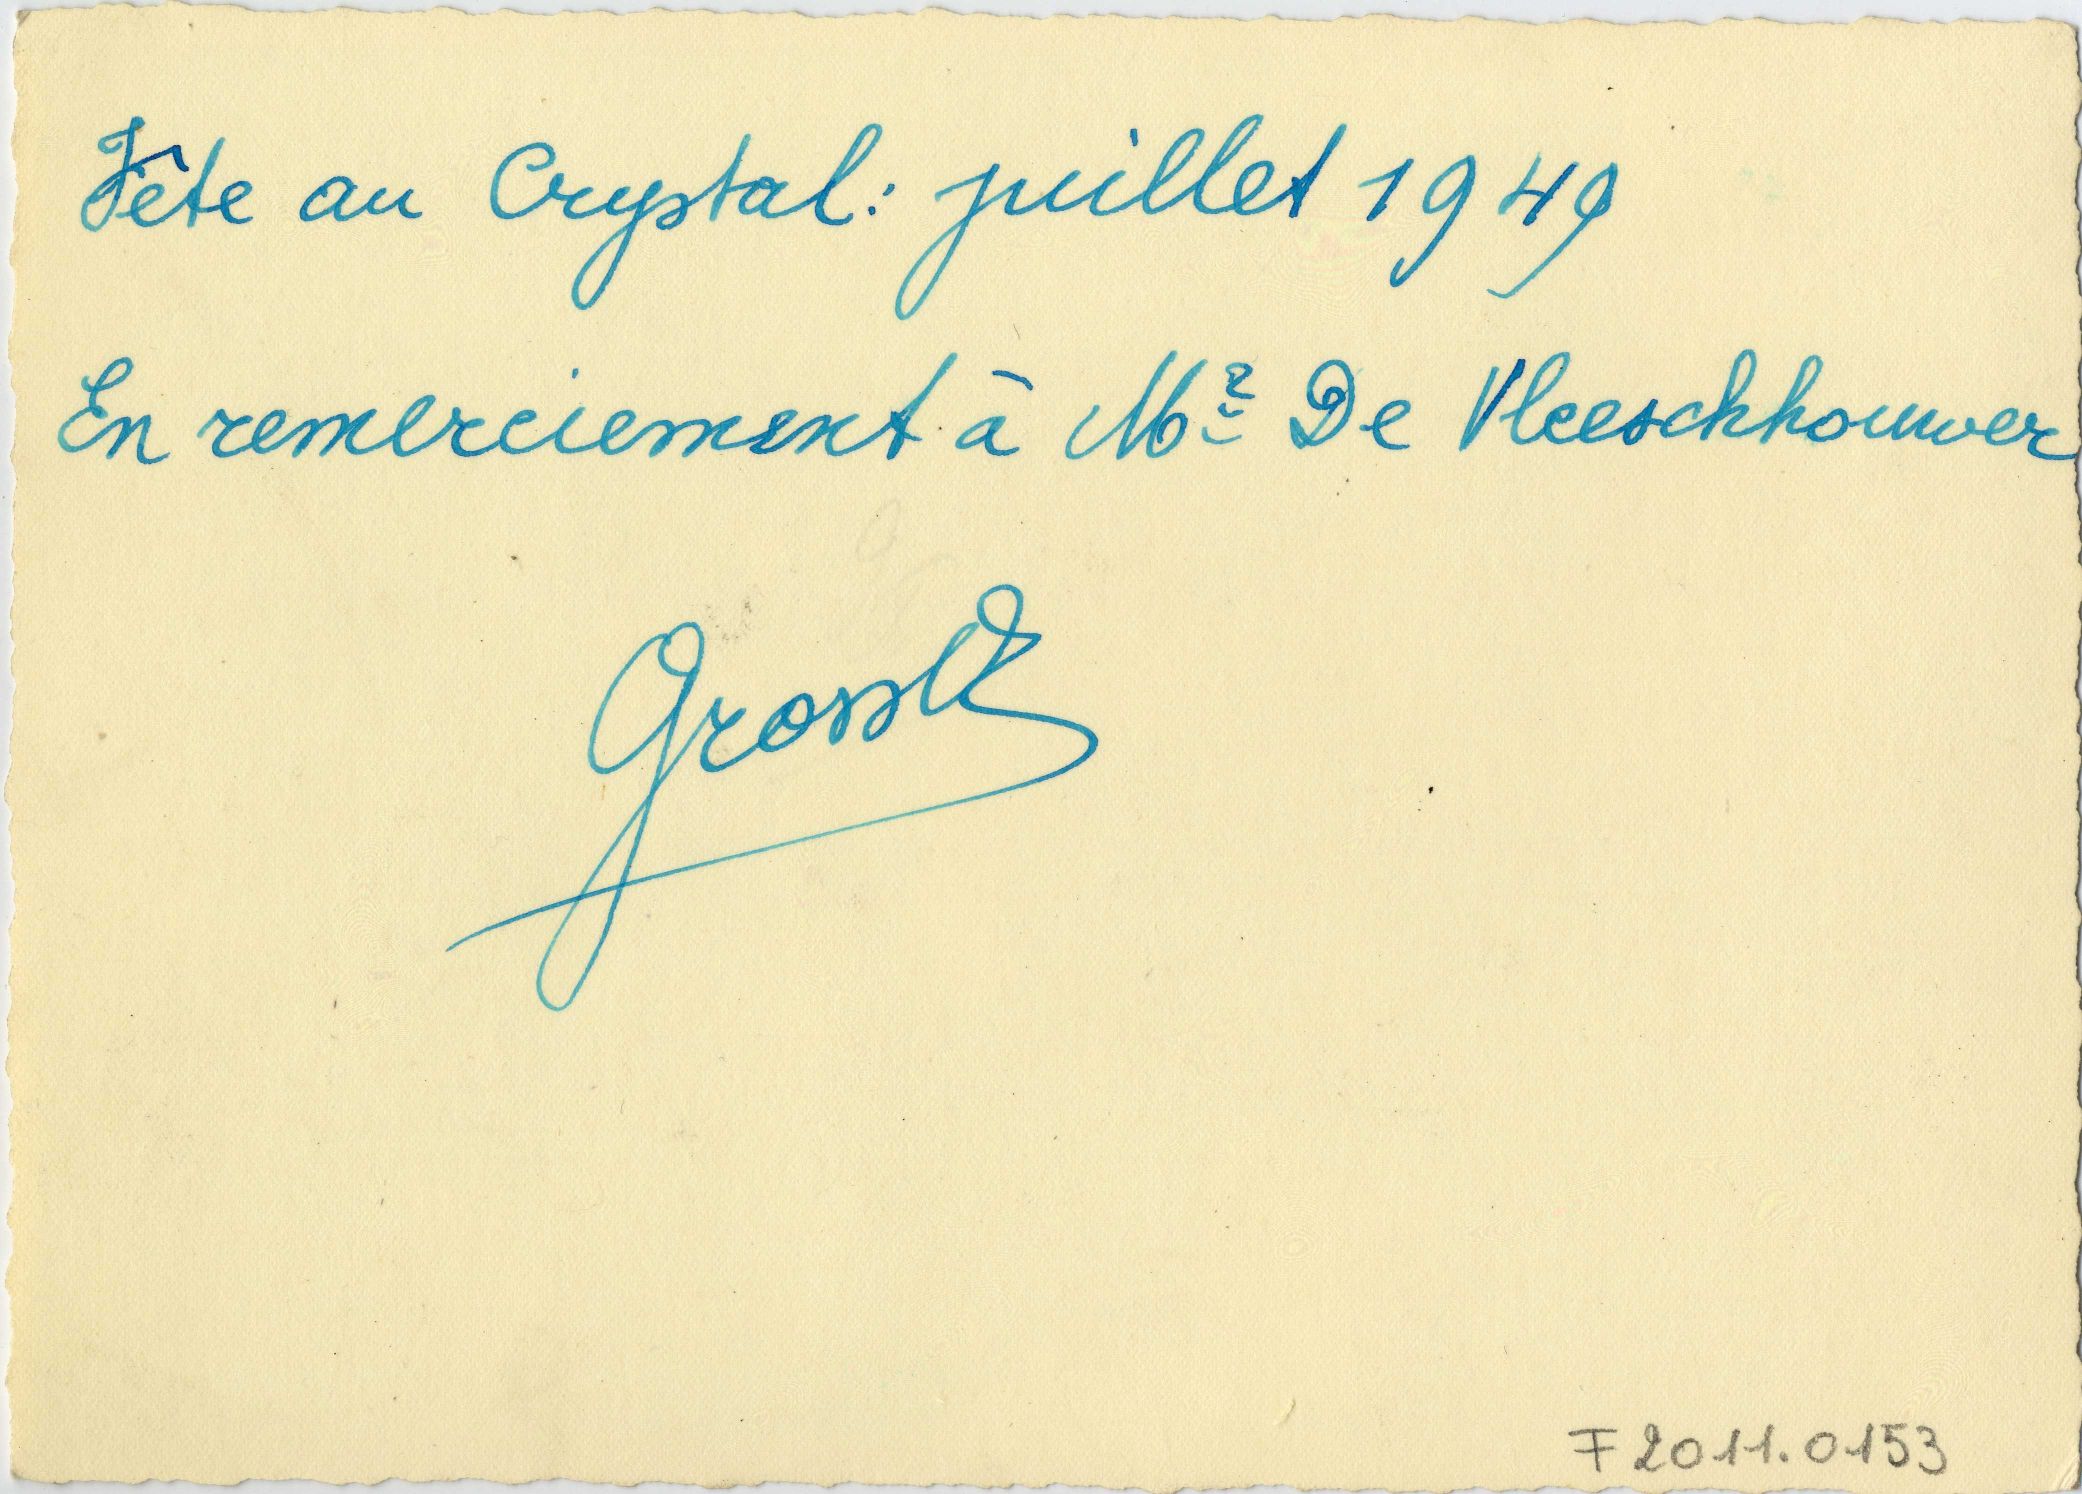 Fête au Crystal: juillet 1949
En remerciement à Mr De Vleeschhouwer
F 2011.0153